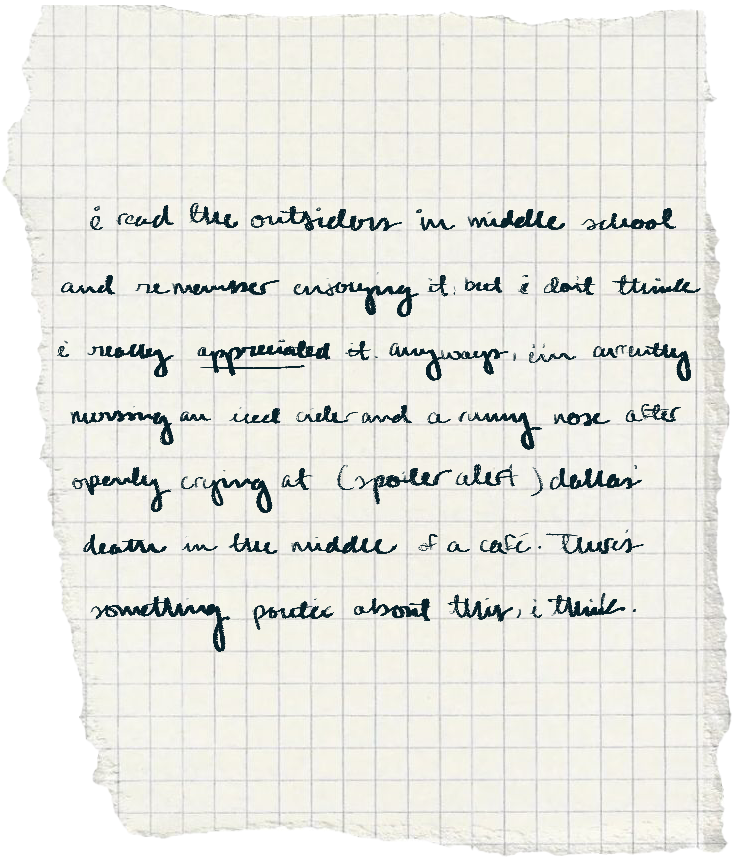 i read the outsiders in middle school
and remember enjoying it, but i don't think
i really appreciated it. anyways, i'm currently
nursing an iced cider and a runny nose after
openly crying at (spoiler alert) dallas'
death in the middle of a café. There's
something poetic about this, i think.